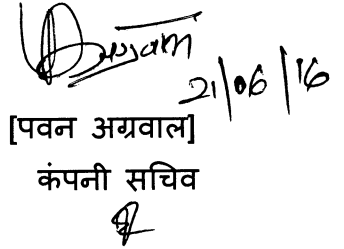 21/06/16
[पवन अग्रवाल]
कंपनी सचिव